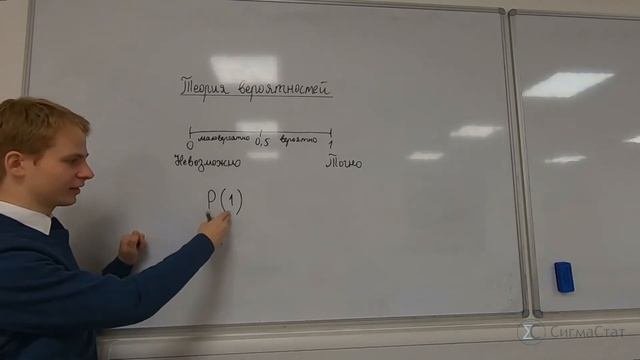 Теория вероятностей
0 маловероятно 0,5 вероятно 1
Невозможно Точно
P(1)
СигмаСтат